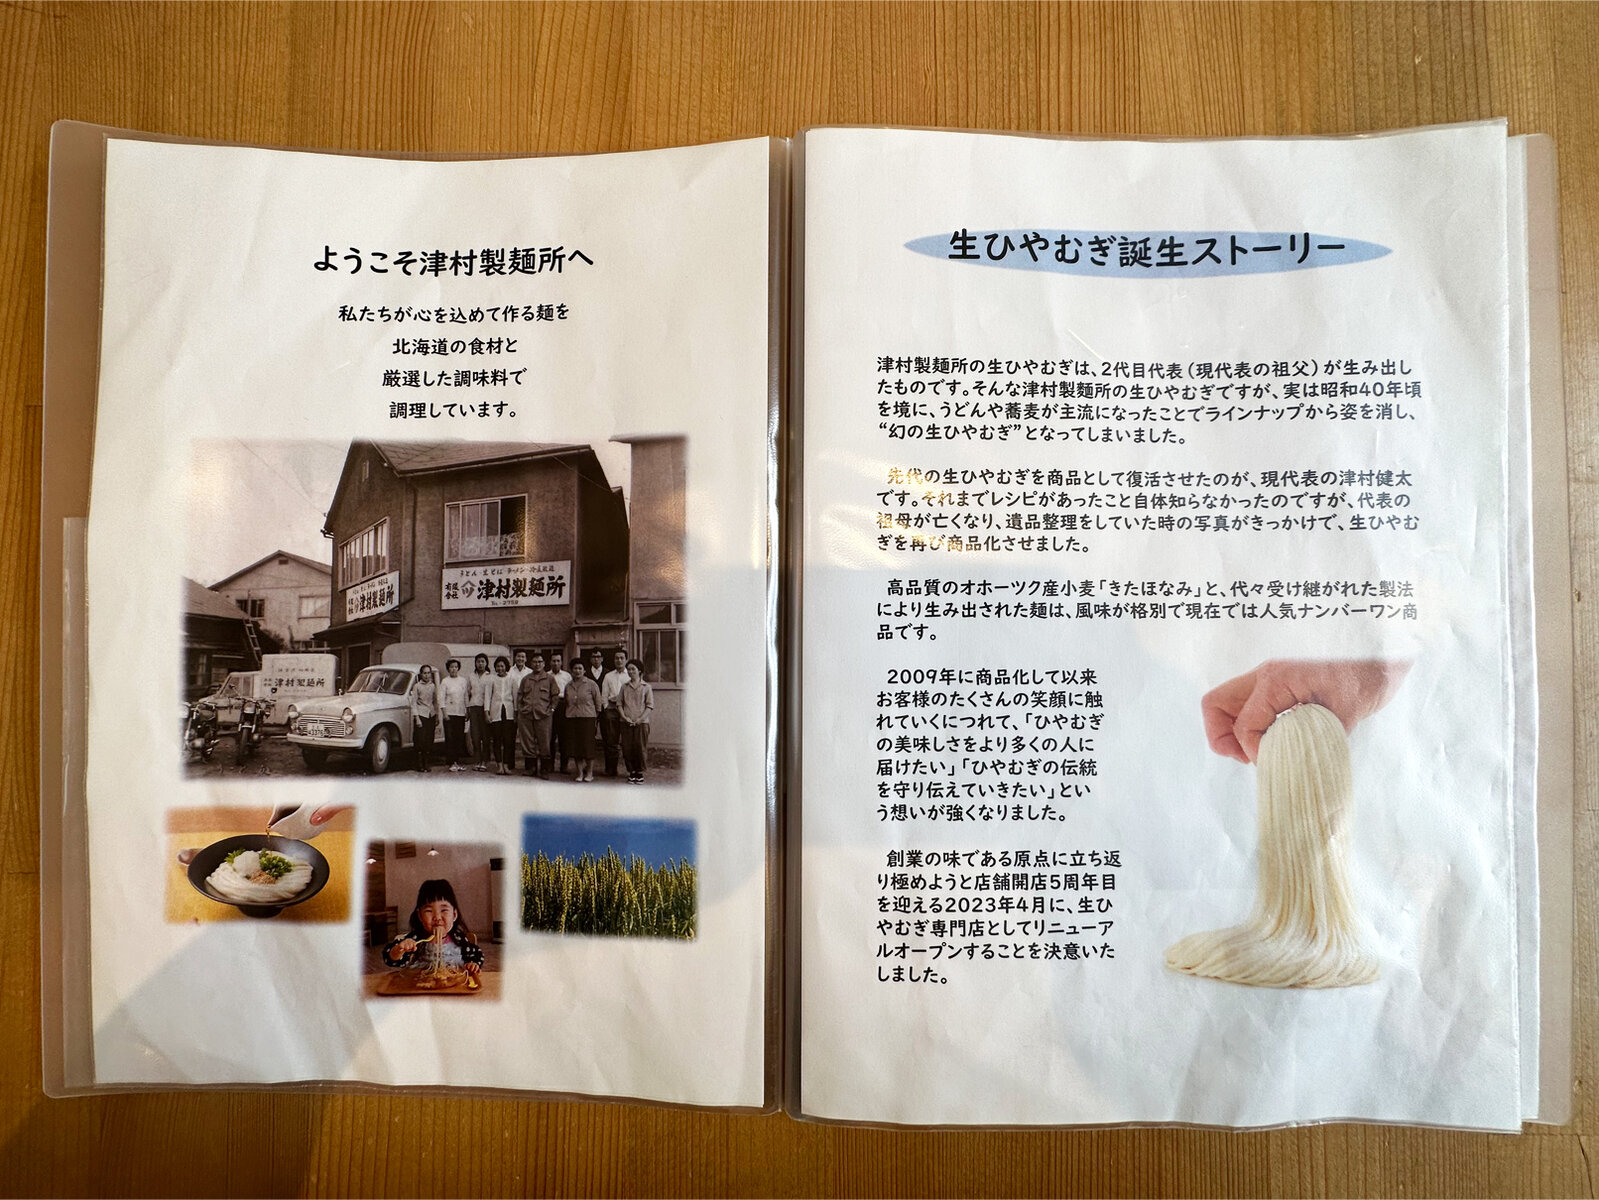 ようこそ津村製麺所へ
私たちが心を込めて作る麺を
北海道の食材と
厳選した調味料で
調理しています。
うどん・生そば ラーメン・冷麦製造
有限会社 津村製麺所
TEL-2759
津村製麺所
津村製麺所
生ひやむぎ誕生ストーリー
津村製麺所の生ひやむぎは、2代目代表(現代表の祖父)が生み出し
たものです。そんな津村製麺所の生ひやむぎですが、実は昭和40年頃
を境に、うどんや蕎麦が主流になったことでラインナップから姿を消し、
“幻の生ひやむぎ”となってしまいました。
先代の生ひやむぎを商品として復活させたのが、現代表の津村健太
です。それまでレシピがあったこと自体知らなかったのですが、代表の
祖母が亡くなり、遺品整理をしていた時の写真がきっかけで、生ひやむ
ぎを再び商品化させました。
高品質のオホーツク産小麦「きたほなみ」と、代々受け継がれた製法
により生み出された麺は、風味が格別で現在では人気ナンバーワン商
品です。
2009年に商品化して以来
お客様のたくさんの笑顔に触
れていくにつれて、「ひやむぎ
の美味しさをより多くの人に
届けたい」「ひやむぎの伝統
を守り伝えていきたい」とい
う想いが強くなりました。
創業の味である原点に立ち返
り極めようと店舗開店5周年目
を迎える2023年4月に、生ひ
やむぎ専門店としてリニューア
ルオープンすることを決意いた
しました。